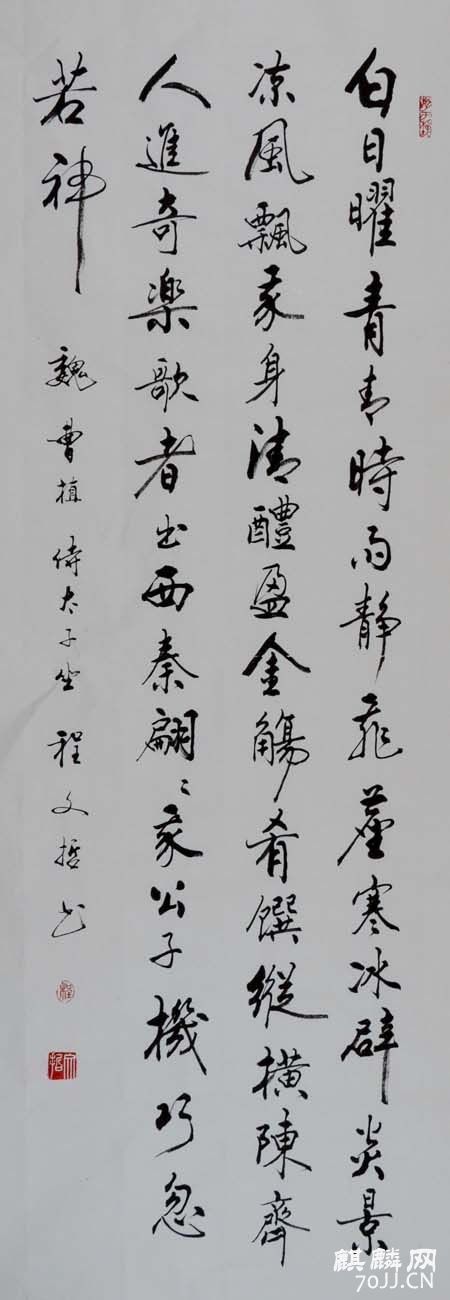 白日曜青青時雨静飛塵寒冰辟炎景
凉風飄我身清醴盈金觴肴饌縱橫陳齊
人進奇楽歌者出西秦翩〻我公子機巧忽
若神 魏曹植侍太子坐 程文哲书
麒麟网
70JJ.CN